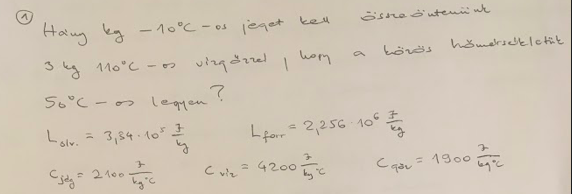 ① Hány kg -10°C-os jeget kell összeöntenünk
3 kg 110°C-os vízgőzzel, hogy a közös hőmérsékletük
50°C-os legyen?
Lolv. = 3,34·10⁵ J/kg Lforr = 2,256·10⁶ J/kg
cjég = 2100 J/kg°C cvíz = 4200 J/kg°C cgőz = 1900 J/kg°C